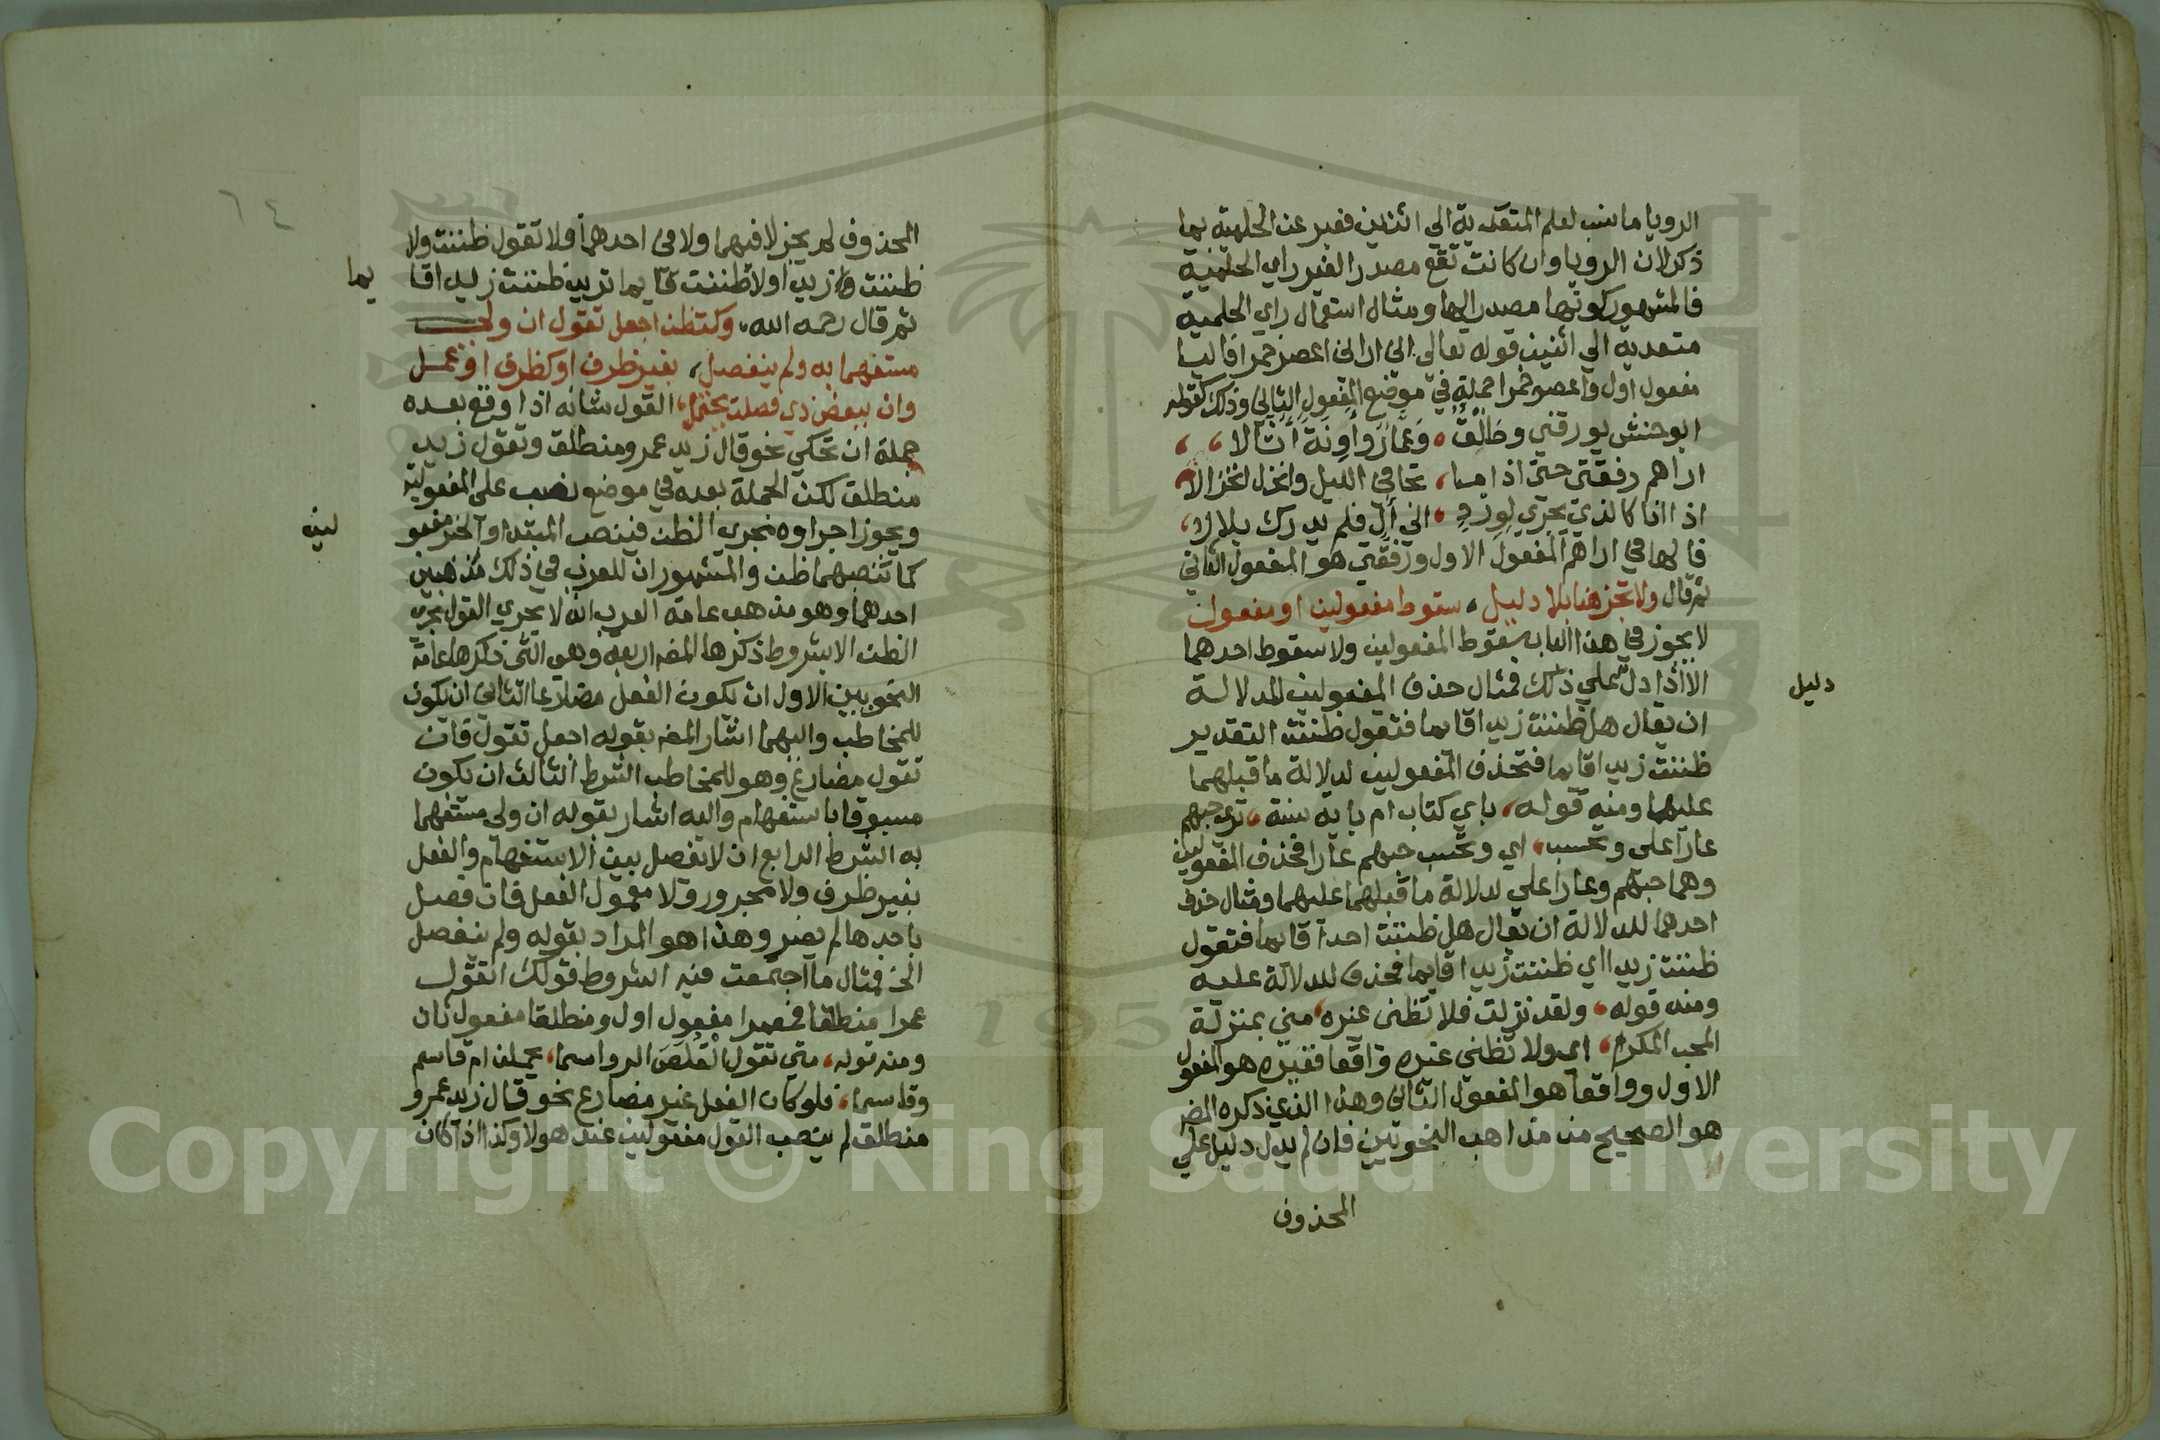 الرويا ما نسب لعلم المتعدية الي اثنين فعبر عن الحلمية بما
ذكر لان الرويا وان كانت تقع مصدرا لغير راي الحلمية
فالمشهور كونها مصدرا لها ومثال استعمال راي الحلمية
متعديه الي اثنين قوله تعالي اني اراني اعصر خمرا فاليا
مفعول اول واعصر خمرا جملة في موضع المفعول الثاني وذلك كقوله
ابو حنش يورقني وطلق وعمار واونة اثالا
اراهم رفقتي حتى اذا ما تجافي الليل وانخزل انخزالا
اذا انا كالذي يجري لورد الي ال فلم يدرك بلالا
فالها في اراهم المفعول الاول ورفقتي هو المفعول الثاني
ثم قال ولا تجز هنا بلا دليل سقوط مفعولين او مفعول
لا يجوز في هذا الباب سقوط المفعولين ولا سقوط احدهما
الا اذا دل علي ذلك فمثال حذف المفعولين للدلالة
دليل
ان يقال هل ظننت زيدا قايما فتقول ظننت التقدير
ظننت زيدا قايما فتحذف المفعولين لدلالة ما قبلهما
عليهما ومنه قوله باي كتاب ام باية سنة تري حبهم
عارا علي وتحسب اي وتحسب حبهم عارا فحذف المفعولين
وهما حبهم وعارا علي لدلالة ما قبلهما عليهما ومثال حذف
احدهما للدلالة ان يقال هل ظننت احدا قايما فتقول
ظننت زيدا اي ظننت زيدا قايما فحذف للدلالة عليه
ومنه قوله ولقد نزلت فلا تظني غيره مني بمنزلة
المحب المكرم اي ولا تظني غيره واقعا فغيره هو المفعول
الاول وواقعا هو المفعول الثاني وهذا الذي ذكره المص
هو الصحيح من مذاهب النحويين فان لم يدل دليل علي
المحذوف
٦٤
المحذوف لم يجز لا فيهما ولا في احدهما فلا تقول ظننت ولا
ظننت زيدا ولا ظننت قايما تريد ظننت زيدا قا
يما
ثم قال رحمه الله وكتظن اجعل تقول ان ولي
مستفهما به ولم ينفصل بغير ظرف او كظرف او عمل
وان ببعض ذي فصلت يحتمل القول شانه اذا وقع بعده
جملة ان تحكي نحو قال زيد عمرو منطلق وتقول زيد
منطلق لكن الجملة بعده في موضع نصب علي المفعولية
ويجوز اجراوه مجري الظن فينصب المبتدا والخبر مفعو
لين
كما تنصبهما ظن والمشهور ان للعرب في ذلك مذهبين
احدهما وهو مذهب عامة العرب انه لا يجري القول مجري
الظن الا بشروط ذكرها المص اربعة وهي التي ذكرها عامة
النحويين الاول ان يكون الفعل مضارعا الثاني ان يكون
للمخاطب واليهما اشار المص بقوله اجعل تقول فان
تقول مضارع وهو للمخاطب الشرط الثالث ان يكون
مسبوقا باستفهام واليه اشار بقوله ان ولي مستفهما
به الشرط الرابع ان لا يفصل بين الاستفهام والفعل
بغير ظرف ولا مجرور ولا معمول الفعل فان فصل
باحدها لم يضر وهذا هو المراد بقوله ولم ينفصل
الخ فمثال ما اجتمعت فيه الشروط قولك اتقول
عمرا منطلقا فعمرا مفعول اول ومنطلقا مفعول ثان
ومنه قوله متي تقول القلص الرواسما يحملن ام قاسم
وقاسما فلو كان الفعل غير مضارع نحو قال زيد عمرو
منطلق لم ينصب القول مفعولين عند هولا وكذا اذا كان
Copyright © King Saud University
1957